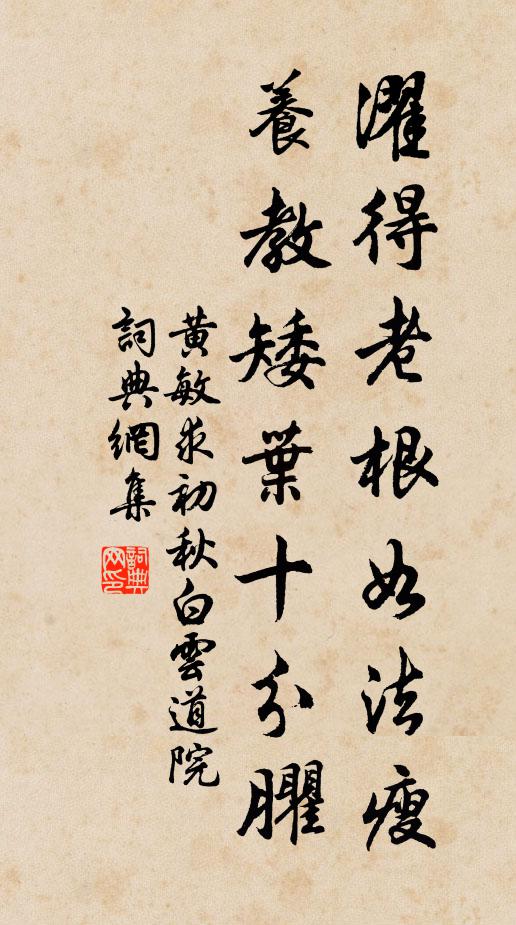 濯得老根如法瘦
養教矮葉十分臞
黃敏求初秋白雲道院
詞典網集
詞典
网印